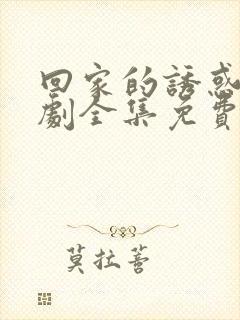 回家的誘惑
劇全集免費
莫拉菩